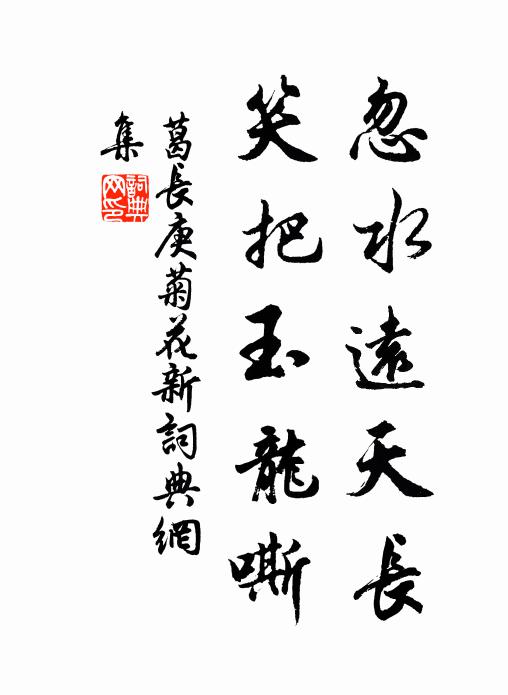 忽水遠天長
笑把玉龍嘶
葛長庚菊花新詞典網
集
詞典
网印